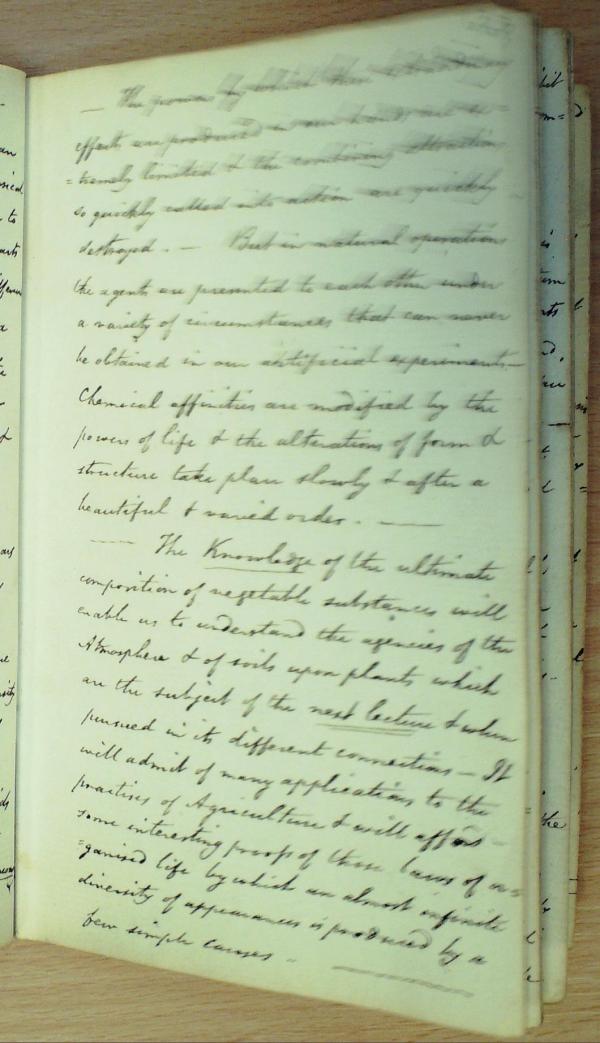 — The powers by which these extraordinary
effects are produced in our hands are ex=
=tremely limited & the combining attractions
so quickly called into action are quickly
destroyed. — But in natural operations
the agents are presented to each other under
a variety of circumstances that can never
be obtained in our artificial experiments—
Chemical affinities are modified by the
powers of life & the alterations of form &
structure take place slowly & after a
beautiful & varied order. —
— The Knowledge of the ultimate
composition of vegetable substances will
enable us to understand the agencies of the
Atmosphere & of soils upon plants which
are the subject of the next lecture & when
pursued in its different connections — It
will admit of many applications to the
practises of Agriculture & will afford
some interesting proofs of those laws of or=
=ganised life by which an almost infinite
diversity of appearances is produced by a
few simple causes —